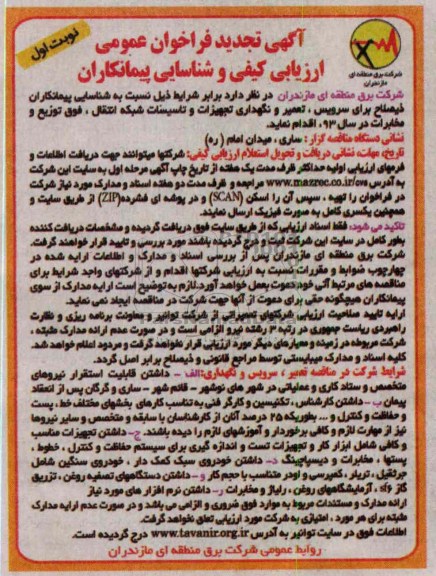 نوبت اول
آگهی تجدید فراخوان عمومی
ارزیابی کیفی و شناسایی پیمانکاران
شرکت برق منطقه ای
مازندران
شرکت برق منطقه ای مازندران در نظر دارد برابر شرایط ذیل نسبت به شناسایی پیمانکاران
ذیصلاح برای سرویس ، تعمیر و نگهداری تجهیزات و تاسیسات شبکه انتقال ، فوق توزیع و
مخابرات در سال ۹۳، اقدام نماید.
نشانی دستگاه مناقصه گزار : ساری ، میدان امام ( ره)
تاریخ، مهلت، نشانی دریافت و تحویل استعلام ارزیابی کیفی: شرکتها میتوانند جهت دریافت اطلاعات و
فرمهای ارزیابی اولیه حداکثر ظرف مدت یک هفته از تاریخ چاپ آگهی مرحله اول به سایت این شرکت
به آدرس www.mazrec.co.ir/ مراجعه و ظرف مدت دو هفته اسناد و مدارک مورد نیاز شرکت
در فراخوان را تهیه ، سپس آن را اسکن (SCAN) و در پوشه ای فشرده(ZIP) از طریق سایت و
همچنین یکسری کامل به صورت فیزیک ارسال نمایند.
تاکید می شود، فقط اسناد ارزیابی که از طریق سایت فوق دریافت گردیده و مشخصات دریافت کننده
بطور کامل در سایت این شرکت ثبت و درج گردیده باشند مورد بررسی و تایید قرار خواهند گرفت.
شرکت برق منطقه ای مازندران پس از بررسی اسناد و مدارک و اطلاعات ارایه شده در
چهارچوب ضوابط و مقررات نسبت به ارزیابی شرکتها اقدام و از شرکتهای واجد شرایط برای
مناقصه های مرتبط آتی خود دعوت بعمل خواهد آورد.لازم به توضیح است ارایه مدارک از سوی
پیمانکاران هیچگونه حقی برای دعوت از آنها جهت شرکت در مناقصه ایجاد نمی نماید.
ارایه تایید صلاحیت ارزیابی شرکتهای تعمیراتی از شرکت توانیر و معاونت برنامه ریزی و نظارت
راهبردی ریاست جمهوری در رتبه ۳ رشته نیرو الزامی است و در صورت عدم ارائه مدارک مثبته ،
شرکت مربوطه در زمینه و معیارهای دیگر مورد ارزیابی قرار نخواهد گرفت و مردود اعلام خواهد شد.
کلیه اسناد و مدارک میبایستی توسط مراجع قانونی و ذیصلاح برابر اصل گردد.
شرایط شرکت در مناقصه تعمیر ، سرویس و نگهداری:الف - داشتن قابلیت استقرار نیروهای
متخصص و ستاد کاری و عملیاتی در شهر های نوشهر - قائم شهر - ساری و گرگان پس از انعقاد
پیمان ب - داشتن کارشناس ، تکنیسین و کارگر فنی به تناسب کار های بخشهای مختلف خط، پست
و حفاظت و کنترل و ... بطوریکه ۲۵ درصد آنان از کارشناسان با سابقه و متخصص و سایر نیروها
نیز از مهارت لازم و کافی برخوردار و آموزشهای لازم را دیده باشند. ج- داشتن تجهیزات مناسب
و کافی شامل ابزار کار و تجهیزات تست و اندازه گیری برای سیستم حفاظت و کنترل ، خطوط ،
پستها ، مخابرات و دیسپاچینگ د- داشتن خودروی سبک کمک دار ، خودروی سنگین شامل
جرثقیل ، تریلر ، کمپرسی و لودر متناسب با حجم کار و - داشتن دستگاههای تصفیه روغن ، تزریق
گاز sf6 ، آزمایشگاههای روغن ، رلیاژ و مخابرات ر- داشتن نرم افزار های مورد نیاز
ارائه مدارک و مستندات مربوط به موارد فوق ضروری و الزامی می باشد و در صورت عدم ارایه مدارک
مثبته برای هر مورد ، امتیازی به شرکت مورد ارزیابی تعلق نخواهد گرفت.
اطلاعات فوق در سایت توانیر به آدرس www.tavanir.org.ir درج گردیده است.
روابط عمومی شرکت برق منطقه ای مازندران